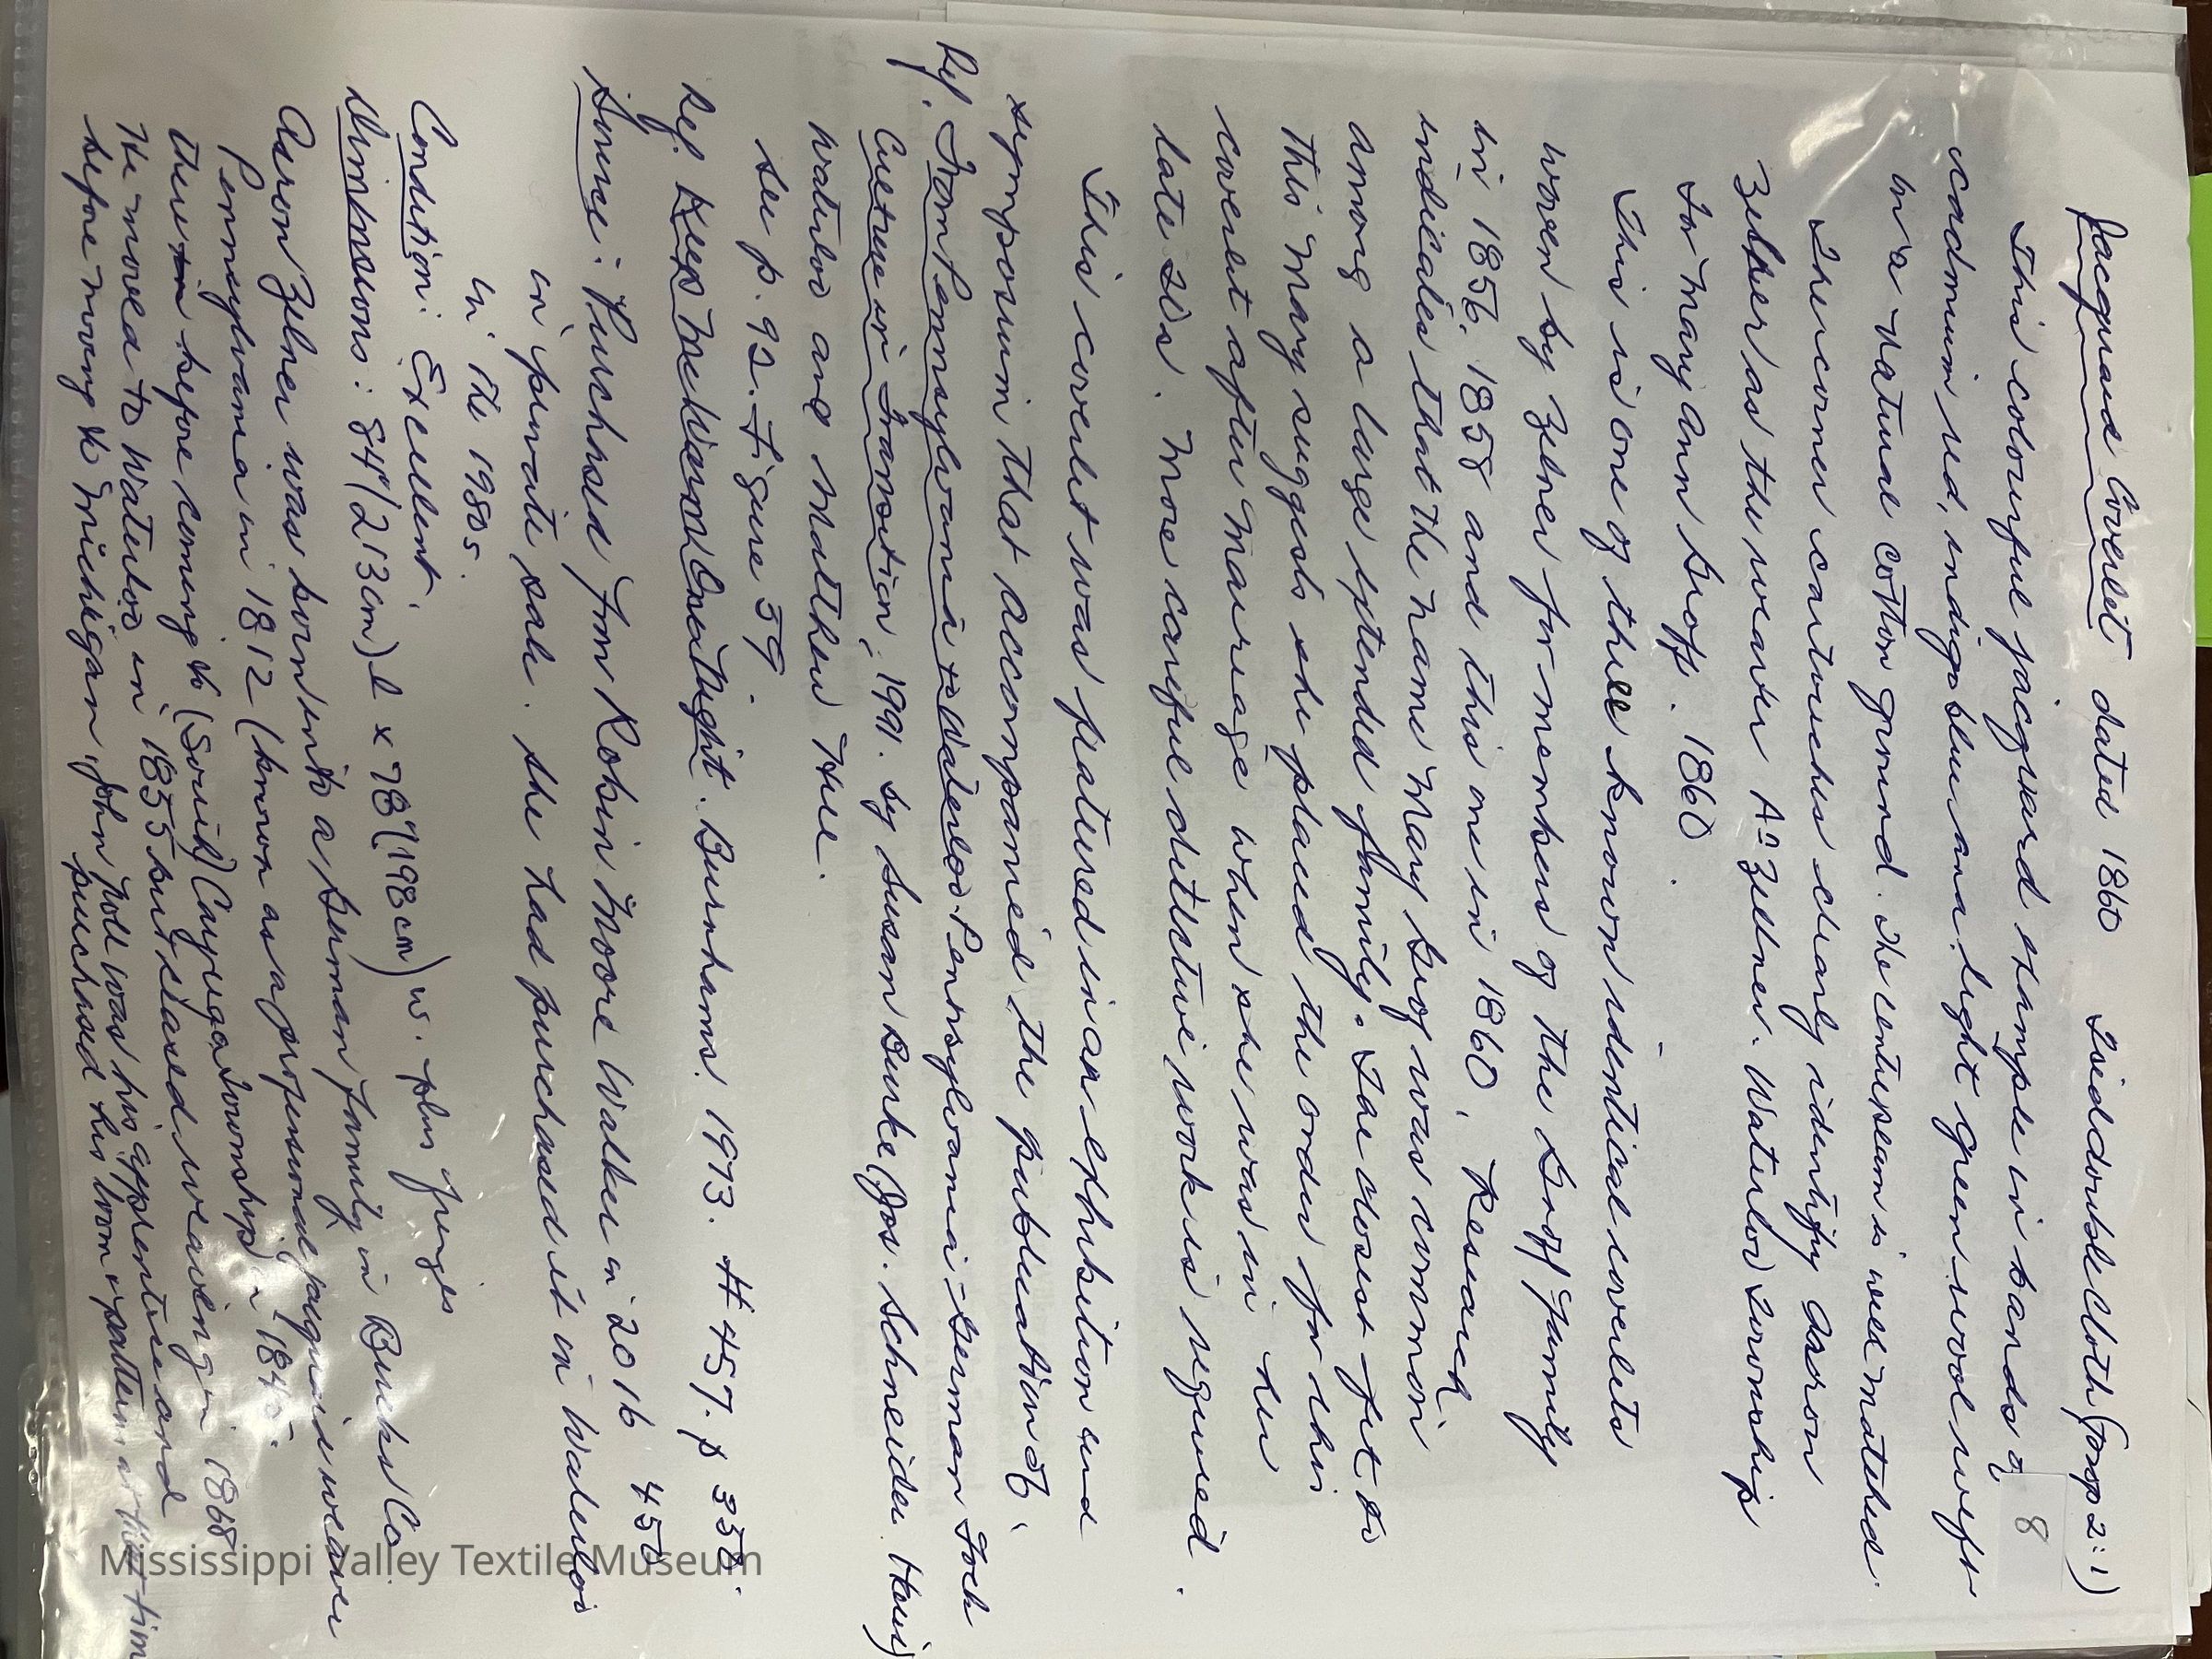 Jacquard Coverlet dated 1860 Tied doublecloth (prop 2:1)
8
This colourful jacquard example in bands of
cadmium red, indigo blue and light green wool weft
in a natural cotton ground. The centre seam is well matched.
The corner cartouches clearly identify Aaron
Zelner as the weaver An Zelner. Waterloo Township
For Mary Ann Groff. 1860.
This is one of three known identical coverlets
woven by Zelner for members of the Groff family
in 1856, 1858 and this one in 1860. Research
indicates that the name Mary Grof was common
among a large extended family. The closest fit to
this Mary suggests she placed the order for this
coverlet after marriage when she was in her
late 20s. More careful detective work is required.
This coverlet was featured in an exhibition and
symposium that accompanied the publication of
Ref. From Pennsylvania to Waterloo. Pennsylvania-German Folk
Culture in Transition, 1991. by Susan Burke (Jos. Schneider Haus)
Waterloo and Matthew Hill.
See p. 92. Figure 59.
Ref. Keep Me Warm One Night. Burnhams. 1973. # 457. p 358.
Source: Purchased from Robin Moore Walker in 2016 450
in private sale. She had purchased it in Waterloo
in the 1980s.
Condition: Excellent.
Dimensions: 84"(213cm) l x 78"(198cm) w. plus fringes
Aaron Zelner was born into a German family in Bucks Co.
Pennsylvania in 1812 (known as a professional jacquard weaver
there in before coming to (South) Cayuga Township in 184.
He moved to Waterloo in 1855 but ceased weaving in 1868
before moving to Michigan, John Noll was his apprentice and
purchased his loom & patterns at that time
Mississippi Valley Textile Museum